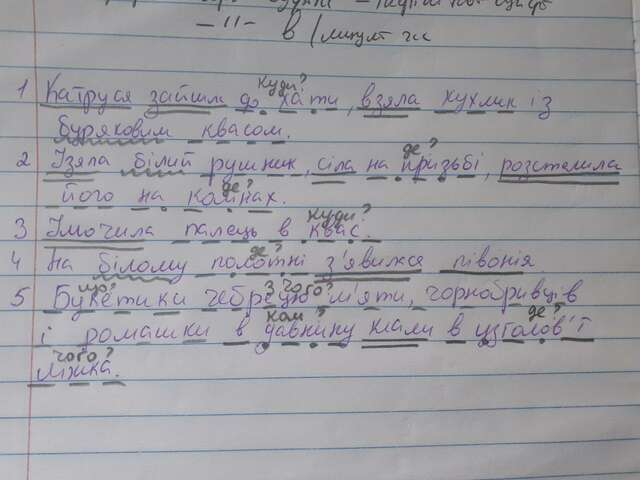 – 11 – в /минул час
куди?
1 Катруся зайшла до хати, взяла кухлик із
буряковим квасом.
де?
2 Узяла білий рушник, сіла на призьбі, розстелила
де?
його на колінах.
куди?
3 Умочила палець в квас.
де?
4 На білому полотні з'явилася півонія
що? з чого?
5 Букетики чебрецю м'яти, чорнобривців
коли? де?
і ромашки в давнину клали в узголів'ї
чого?
ліжка.